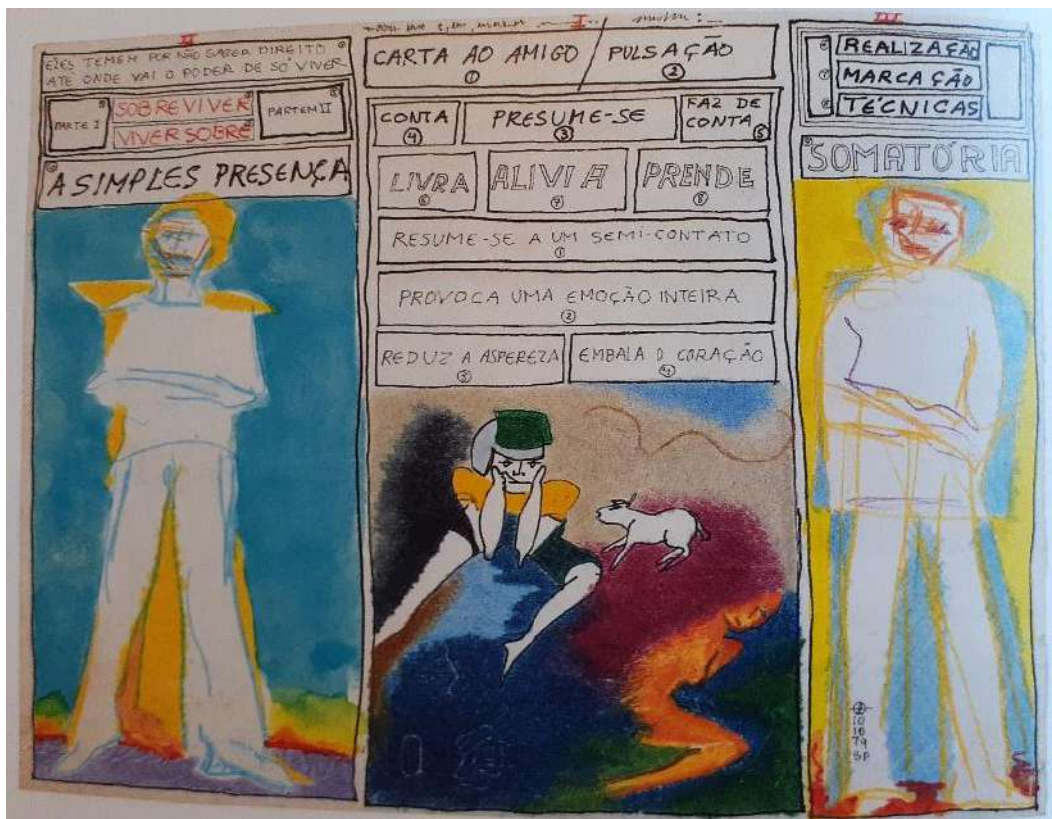 II
ELES TEMEM POR NÃO SABER DIREITO
ATÉ ONDE VAI O PODER DE SÓ VIVER
PARTE I
SOBREVIVER
VIVER SOBRE
PARTEM II
A SIMPLES PRESENÇA
I
CARTA AO AMIGO / PULSAÇÃO
1 2
CONTA
4
PRESUME-SE
3
FAZ DE
CONTA
5
LIVRA
6
ALIVIA
7
PRENDE
8
RESUME-SE A UM SEMI-CONTATO
1
PROVOCA UMA EMOÇÃO INTEIRA
2
REDUZ A ASPEREZA
3
EMBALA O CORAÇÃO
4
III
REALIZAÇÃO
MARCAÇÃO
TÉCNICAS
SOMATÓRIA
10
79
SP